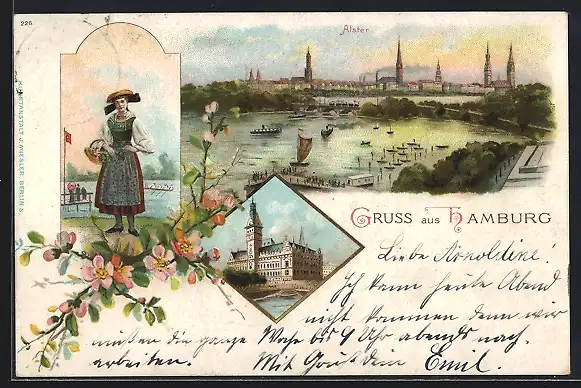 226
Alster
KUNSTANSTALT J. MIESLER, BERLIN S.
GRUSS aus HAMBURG
Liebe Arnoldine!
Ich kann heute Abend
nicht kommen denn wir
müssen die ganze Woche bis 9 Uhr abends nach-
arbeiten. Mit Gruß Dein Emil.